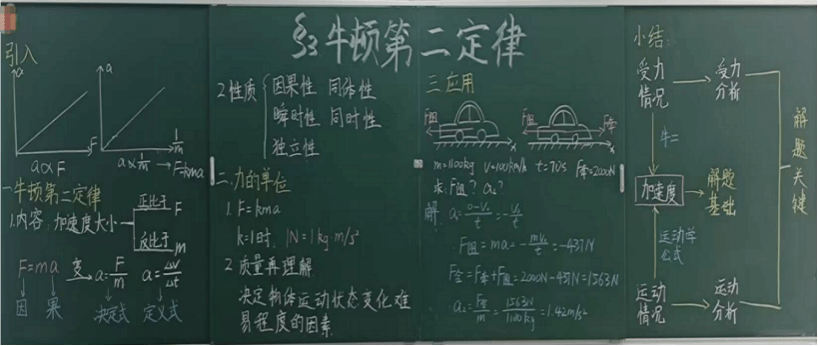 §3牛顿第二定律
引入
a
F
a∝F
a
1/m
a∝1/m → F=kma
一、牛顿第二定律
1.内容：加速度大小
正比于 F
反比于 m
F=ma 变 a=F/m a=Δv/Δt
因 果 决定式 定义式
2.性质
因果性 同体性
瞬时性 同时性
独立性
二、力的单位
1. F=kma
k=1时, 1N=1kg·m/s²
2.质量再理解
决定物体运动状态变化难
易程度的因素
三、应用
F阻
x
F阻 F牵
x
m=1100kg v=100km/h t=70s F牵=2000N
求：F阻？a₂？
解： a=0-v₀/t=-v₀/t
F阻=ma=-mv₀/t=-437N
F合=F牵+F阻=2000N-437N=1563N
∴ a₂=F合/m=1563N/1100kg=1.42m/s²
小结：
受力情况 → 受力分析
牛二
加速度 → 解题基础
运动学公式
运动情况 → 运动分析
解题关键